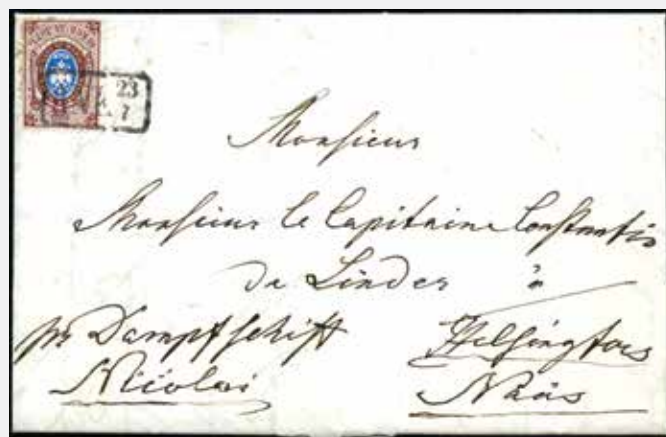 23
7
Monsieur
Monsieur le Capitaine Constantin
de Linder à
pr Dampfschiff Helsingfors
Nicolai Näås